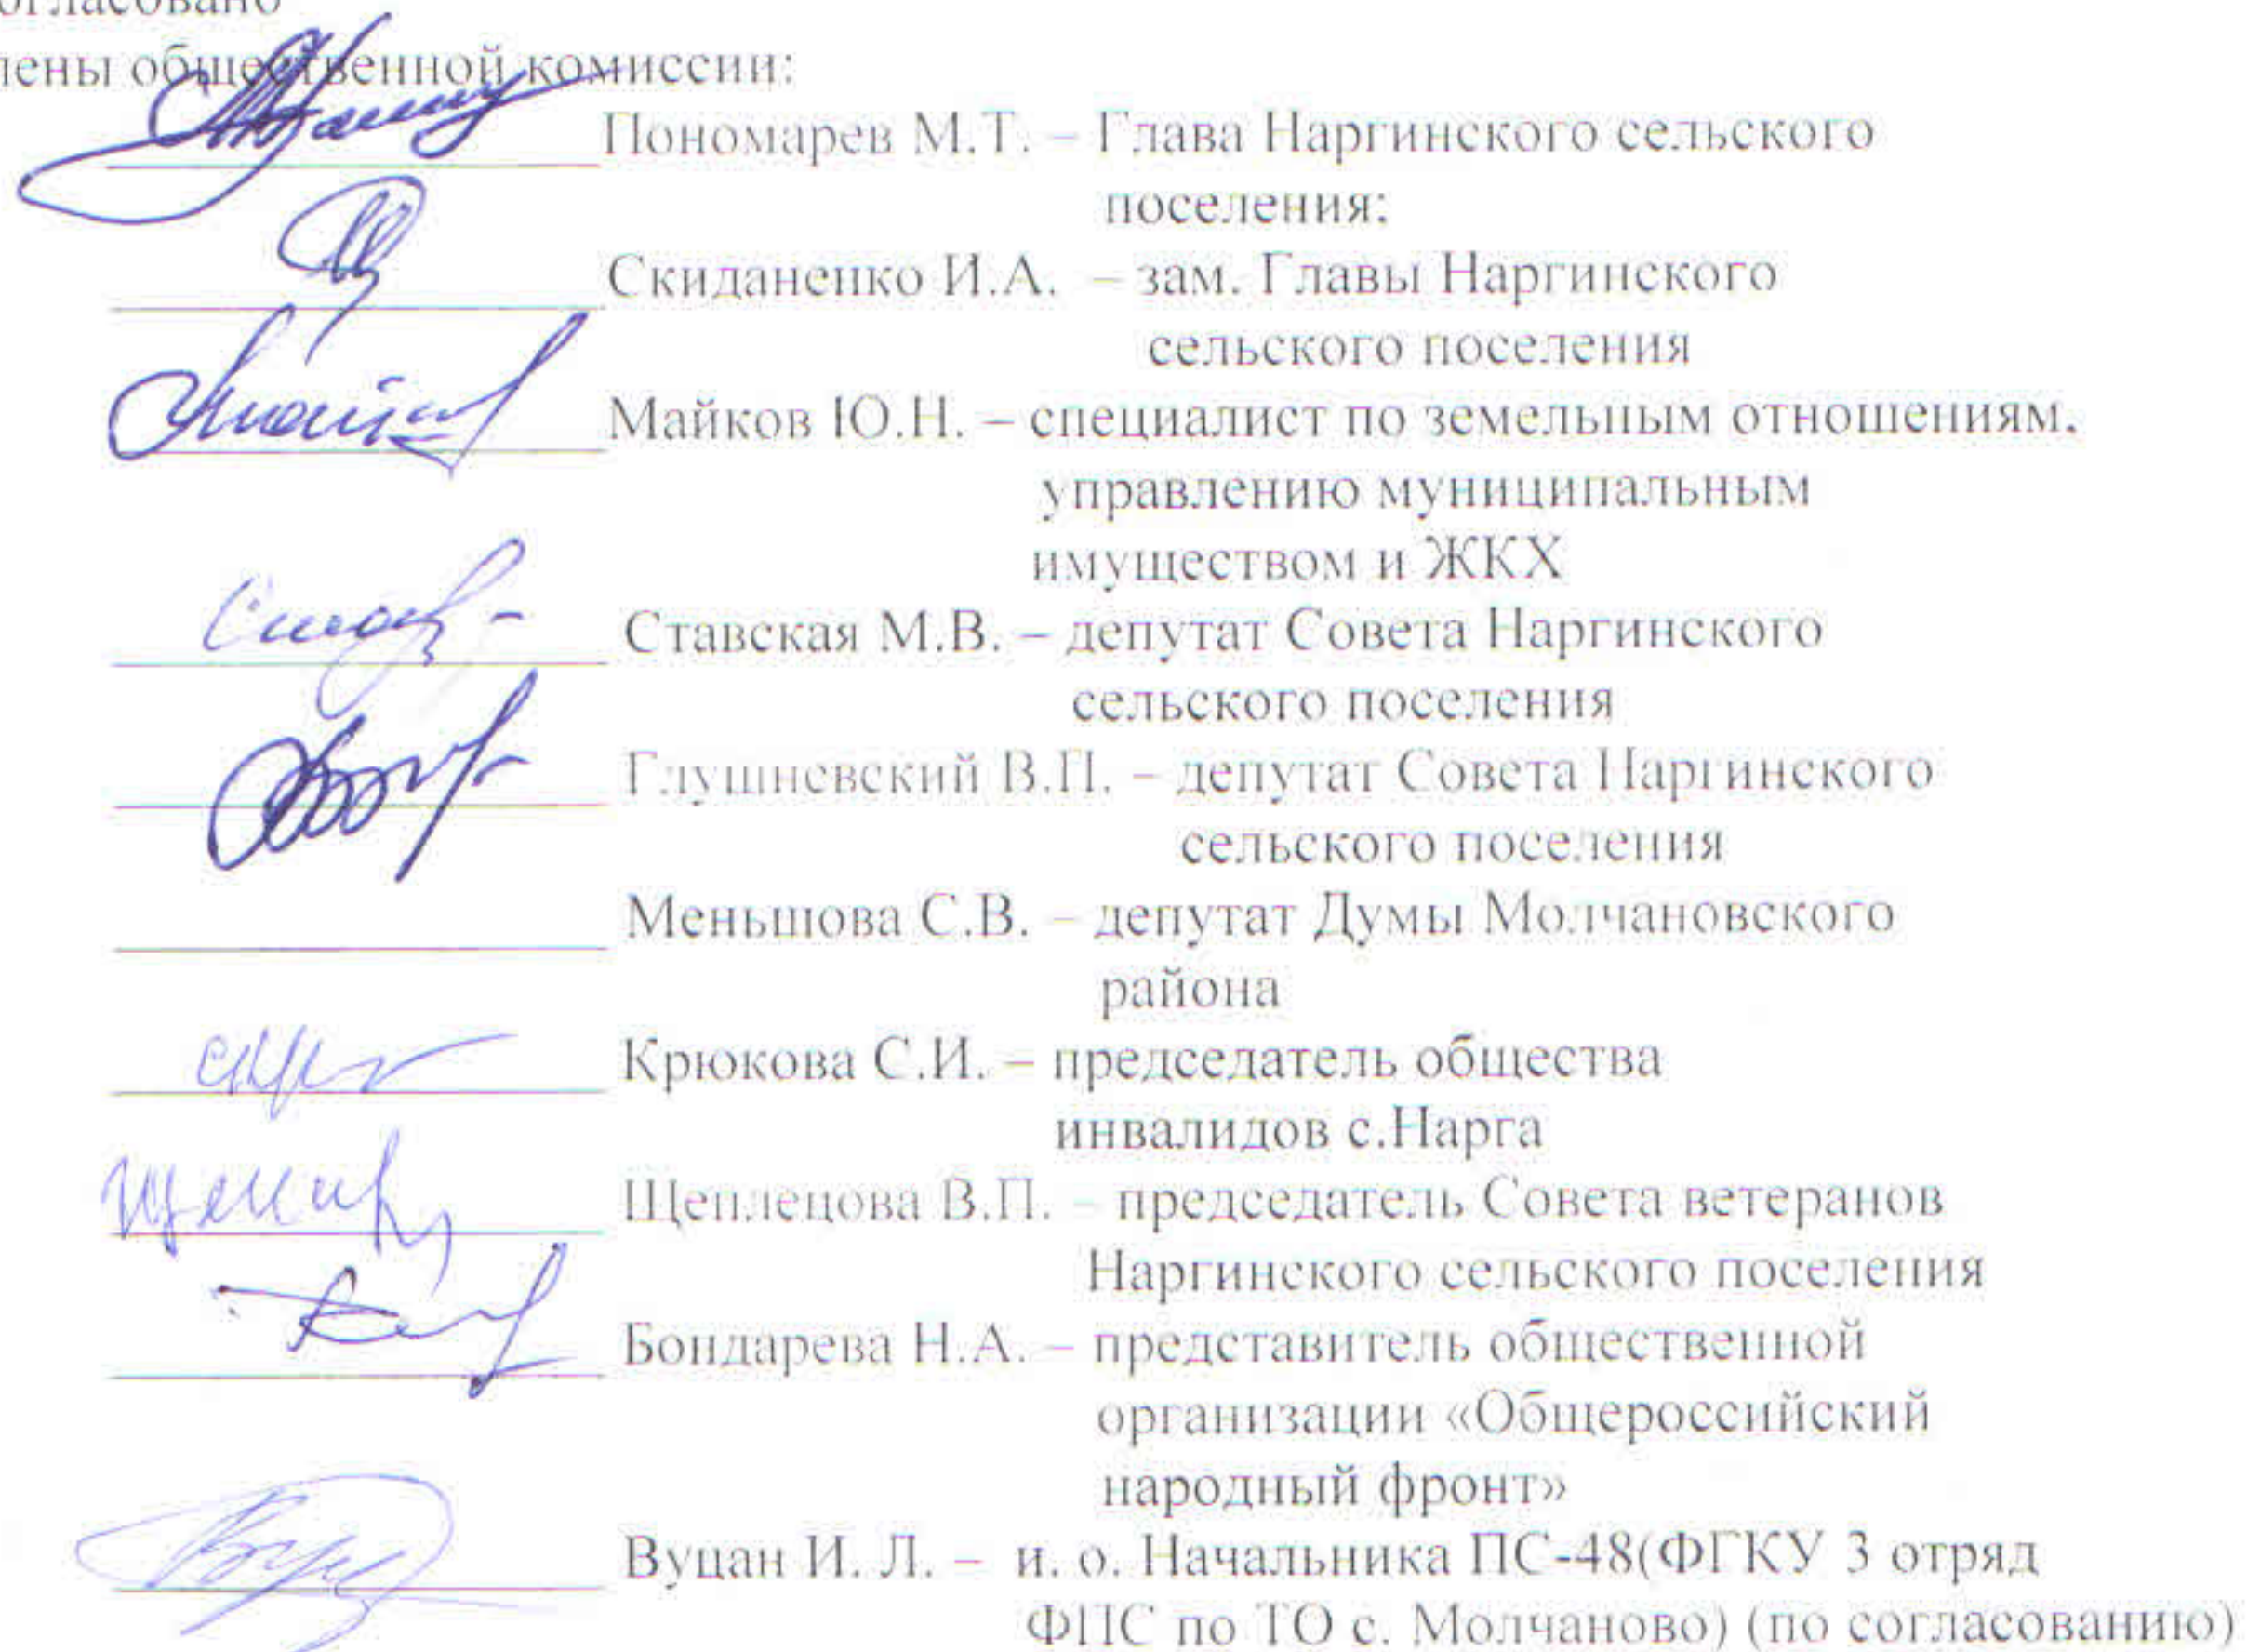 огласовано
лены общественной комиссии:
Пономарев М.Т. – Глава Наргинского сельского
поселения;
Скиданенко И.А. – зам. Главы Наргинского
сельского поселения
Майков Ю.Н. – специалист по земельным отношениям,
управлению муниципальным
имуществом и ЖКХ
Ставская М.В. – депутат Совета Наргинского
сельского поселения
Глушневский В.П. – депутат Совета Наргинского
сельского поселения
Меньшова С.В. – депутат Думы Молчановского
района
Крюкова С.И. – председатель общества
инвалидов с.Нарга
Щеплецова В.П. – председатель Совета ветеранов
Наргинского сельского поселения
Бондарева Н.А. – представитель общественной
организации «Общероссийский
народный фронт»
Вуцан И. Л. – и. о. Начальника ПС-48(ФГКУ 3 отряд
ФПС по ТО с. Молчаново) (по согласованию)